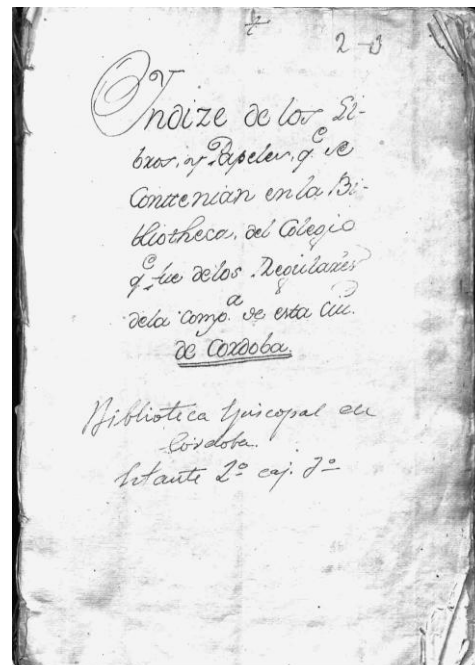 2-0
Yndize de los Li-
bros, y Papeles, q.e se
Contenian en la Bi-
bliotheca, del Colegio
q.e fue delos Regulares
dela Comp.a de esta Ciu.
de Cordoba.
Biblioteca Episcopal de
Córdoba.
Estante 2º caj. 7º